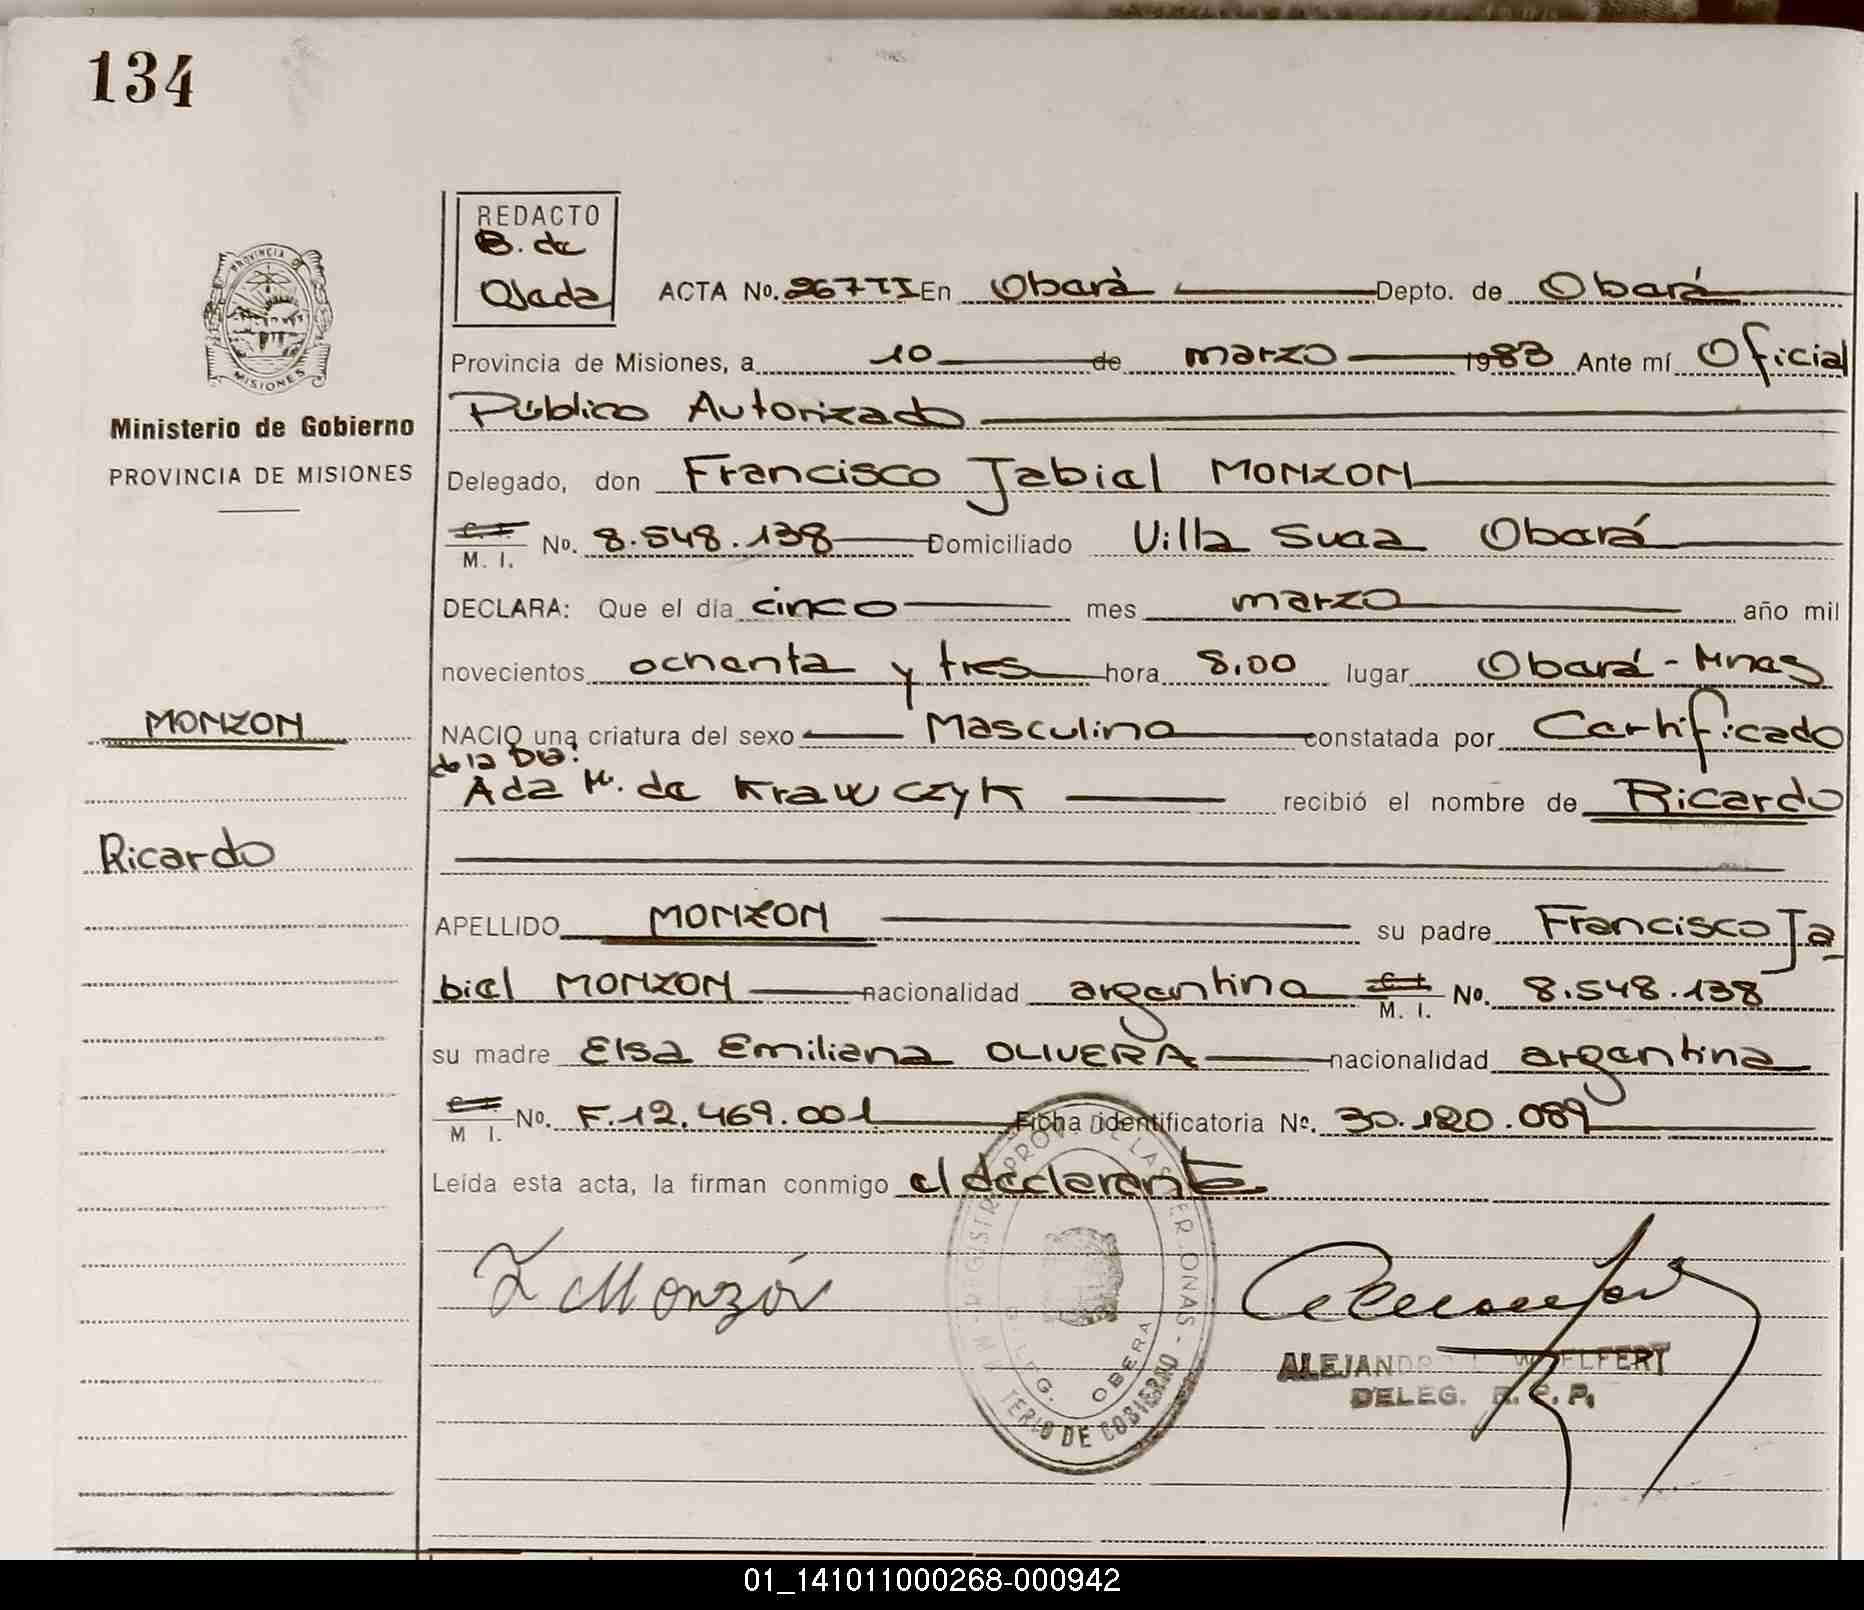 134
REDACTO
B. de
Ojeda
PROVINCIA DE
MISIONES
Ministerio de Gobierno
PROVINCIA DE MISIONES
ACTA No. 267TI En Oberá Depto. de Oberá
Provincia de Misiones, a 10 de marzo 1983 Ante mí Oficial
Público Autorizado
Delegado, don Francisco Jabiel MONZON
M. I. No. 8.548.138 Domiciliado Villa Suea Oberá
DECLARA: Que el día cinco mes marzo año mil
novecientos ochenta y tres hora 8,00 lugar Oberá - Mnes
MONZON
NACIO una criatura del sexo Masculino constatada por Certificado
de la Dra.
Ada M. de Krawczyk recibió el nombre de Ricardo
Ricardo
APELLIDO MONZON su padre Francisco Ja
biel MONZON nacionalidad argentino M. I. No. 8.548.138
su madre Elsa Emiliana OLIVERA nacionalidad argentina
M I. No. F.12.469.001 Ficha identificatoria No. 30.120.089
Leída esta acta, la firman conmigo el declarante
F Monzón
REGISTR PROV. DE LAS PERSONAS -
DELEG. OBERA
TERIO DE GOBIERNO
ALEJANDRO WOELFERT
DELEG. R. P. P.
01_141011000268-000942